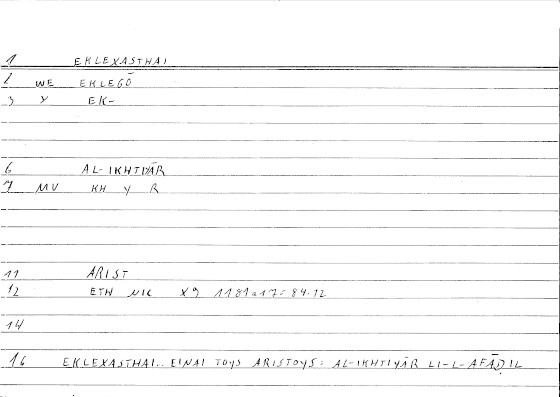 1 EKLEXASTHAI
2 WE EKLEGŌ
3 Y EK-
6 AL-IKHTIYĀR
7 MV KH Y R
11 ARIST
12 ETH NIC X9 1181a17: 84.12
14
16 EKLEXASTHAI.. EINAI TOYS ARISTOYS: AL-IKHTIYĀR LI-L-AFĀḌIL